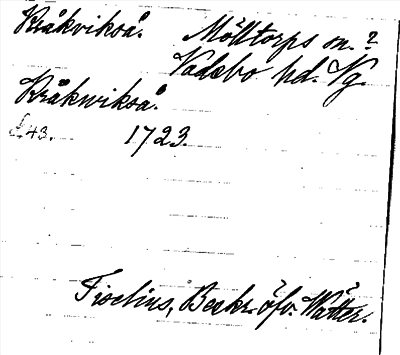 Kråkvikså. Mölltorps sn. ?
Vadsbo hd. Vg.
Kråkwikså.
s. 43. 1723.
Tiselius, Beskr. öfv. Wätter.